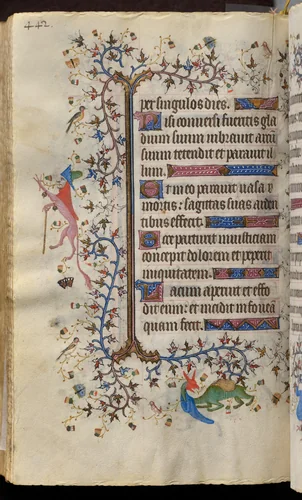 442.
per singulos dies.
Nisi conversi fueritis gla
dium suum vibravit arcū
suum tetendit et paravit il
lum.
Et in eo paravit vasa m
mortis: sagittas suas arden
tibus effecit.
Ecce parturit iniusticiam
concepit dolorem et peperit
iniquitatem.
Lacum aperuit et effo
dit eum: et incidit in foveā
quam fecit.